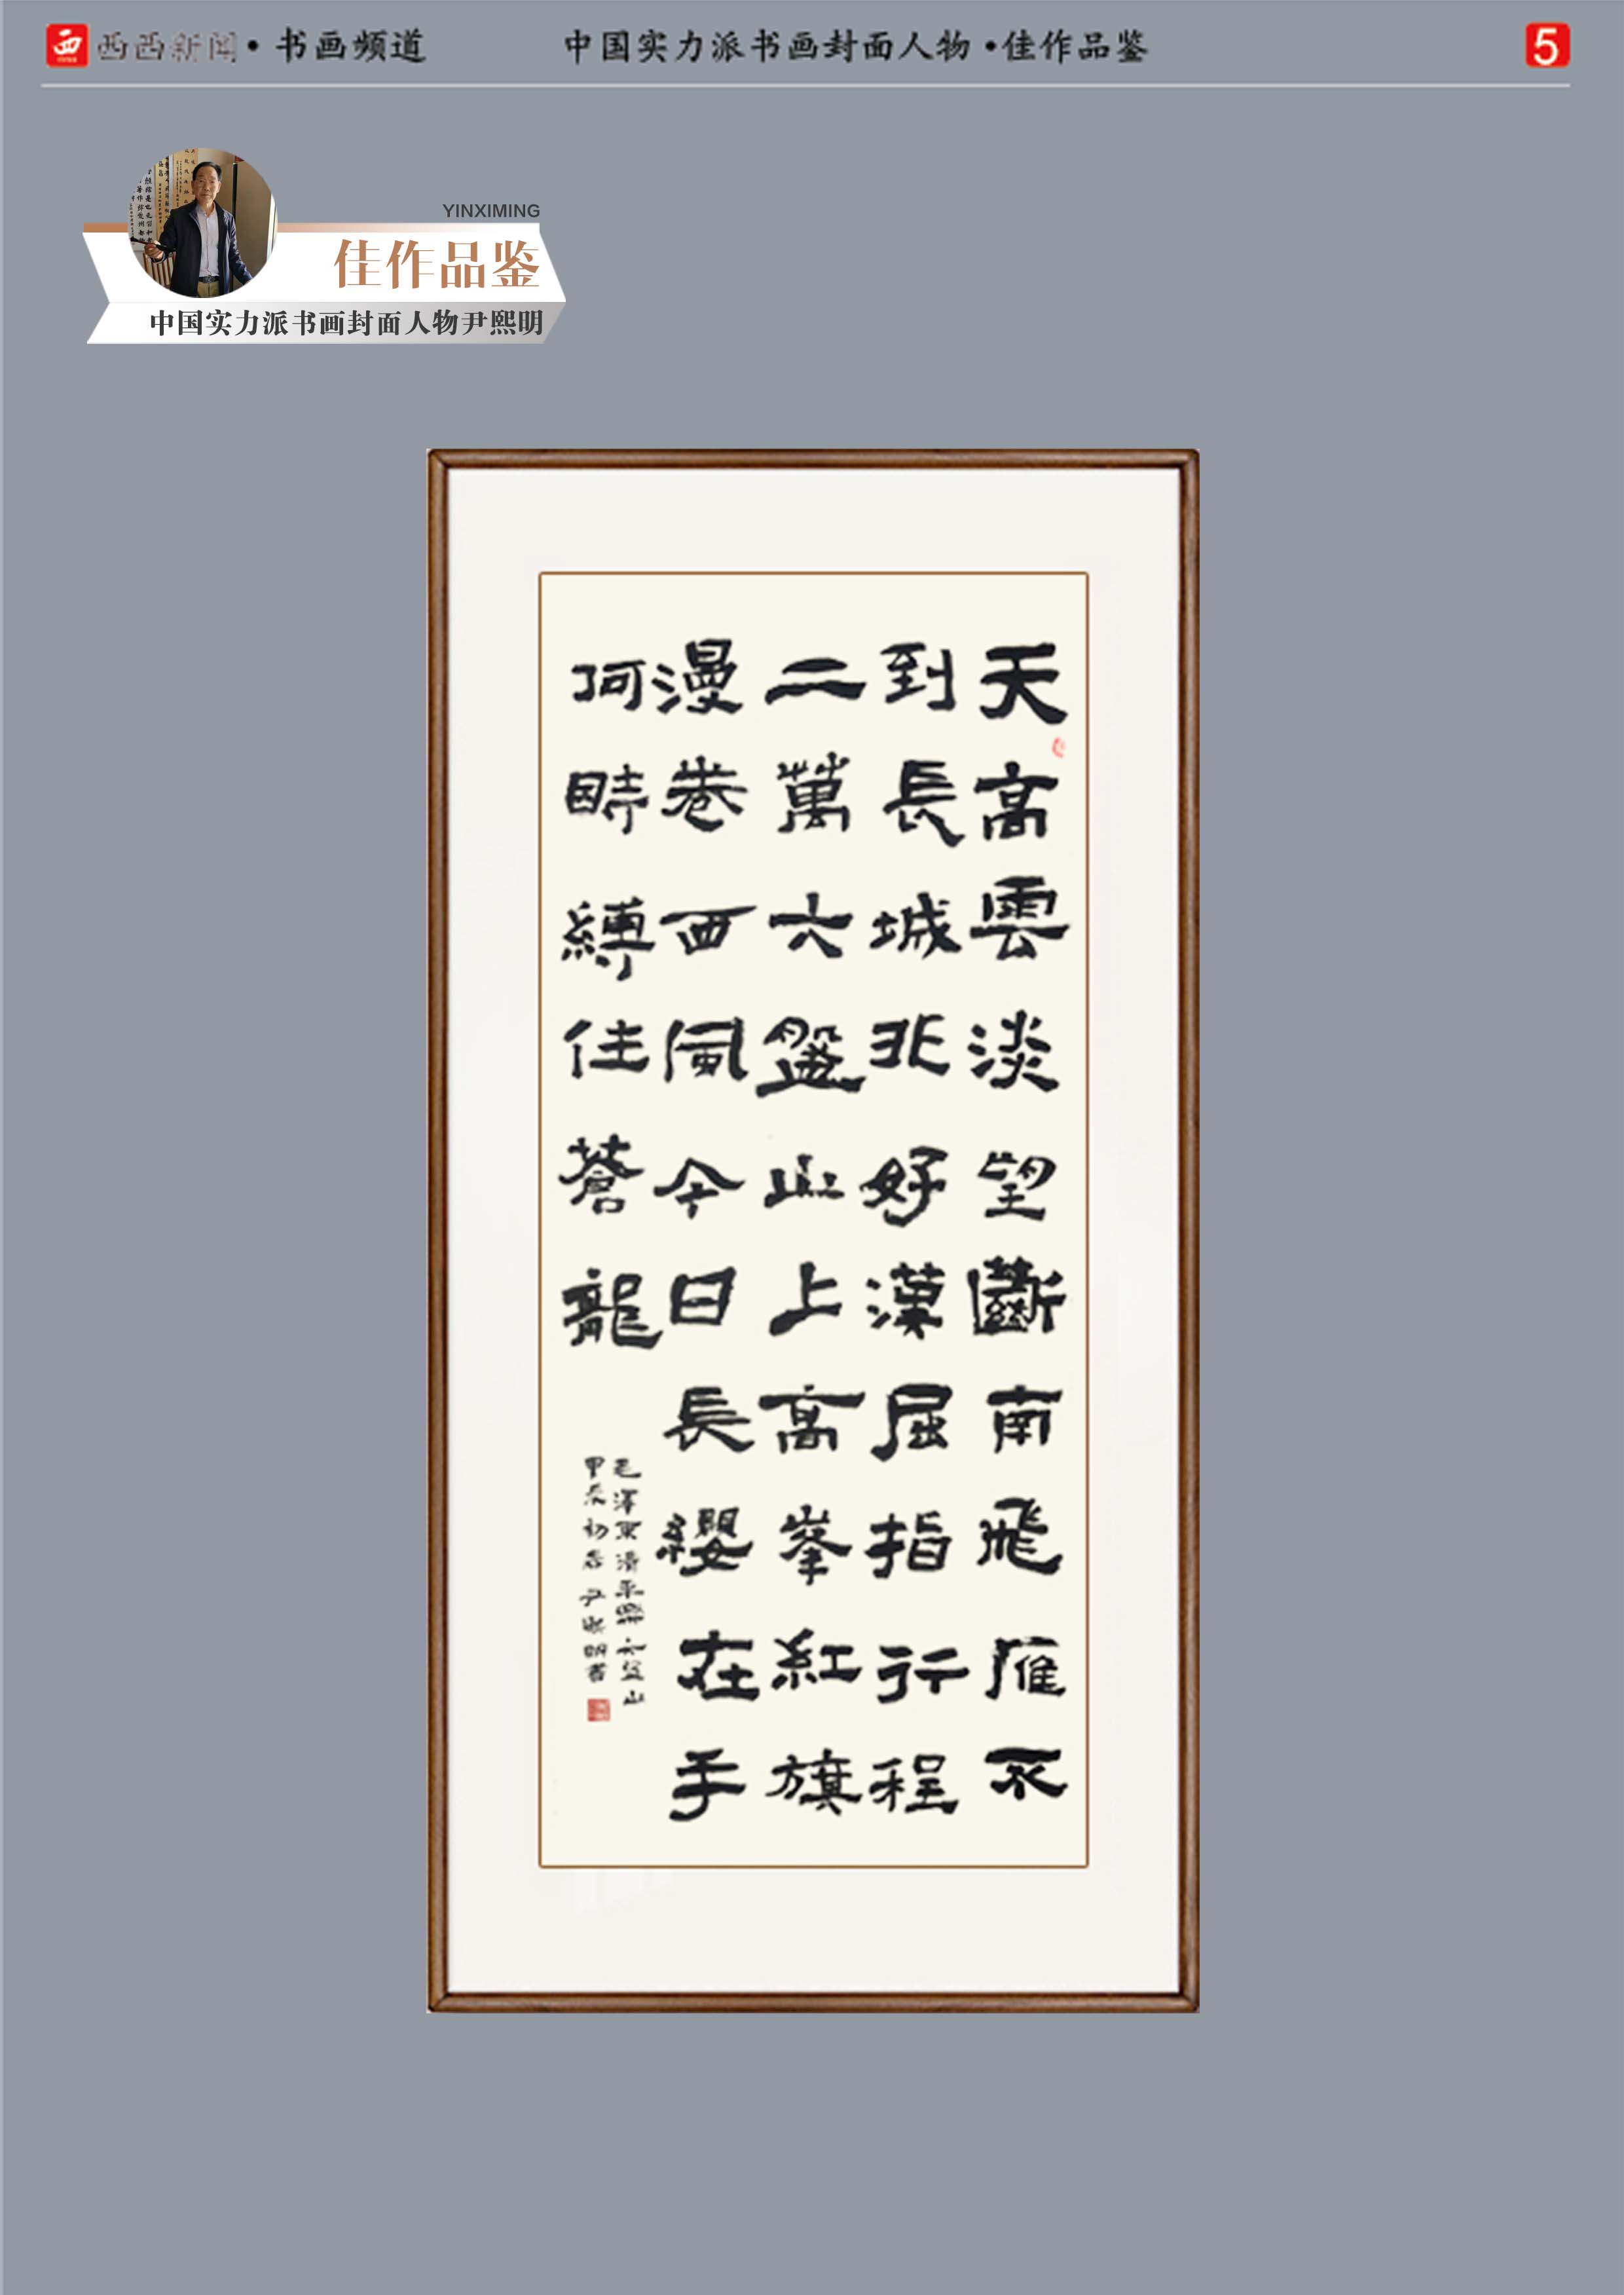 西 西西新闻•书画频道
中国实力派书画封面人物•佳作品鉴
5
YINXIMING
佳作品鉴
中国实力派书画封面人物尹熙明
天高雲淡望斷南飛雁不
到長城非好漢屈指行程
二萬六盤山上高峯紅旗
漫卷西風今日長纓在手
何時縛住蒼龍
毛澤東清平樂六盤山
甲辰初春尹熙明書